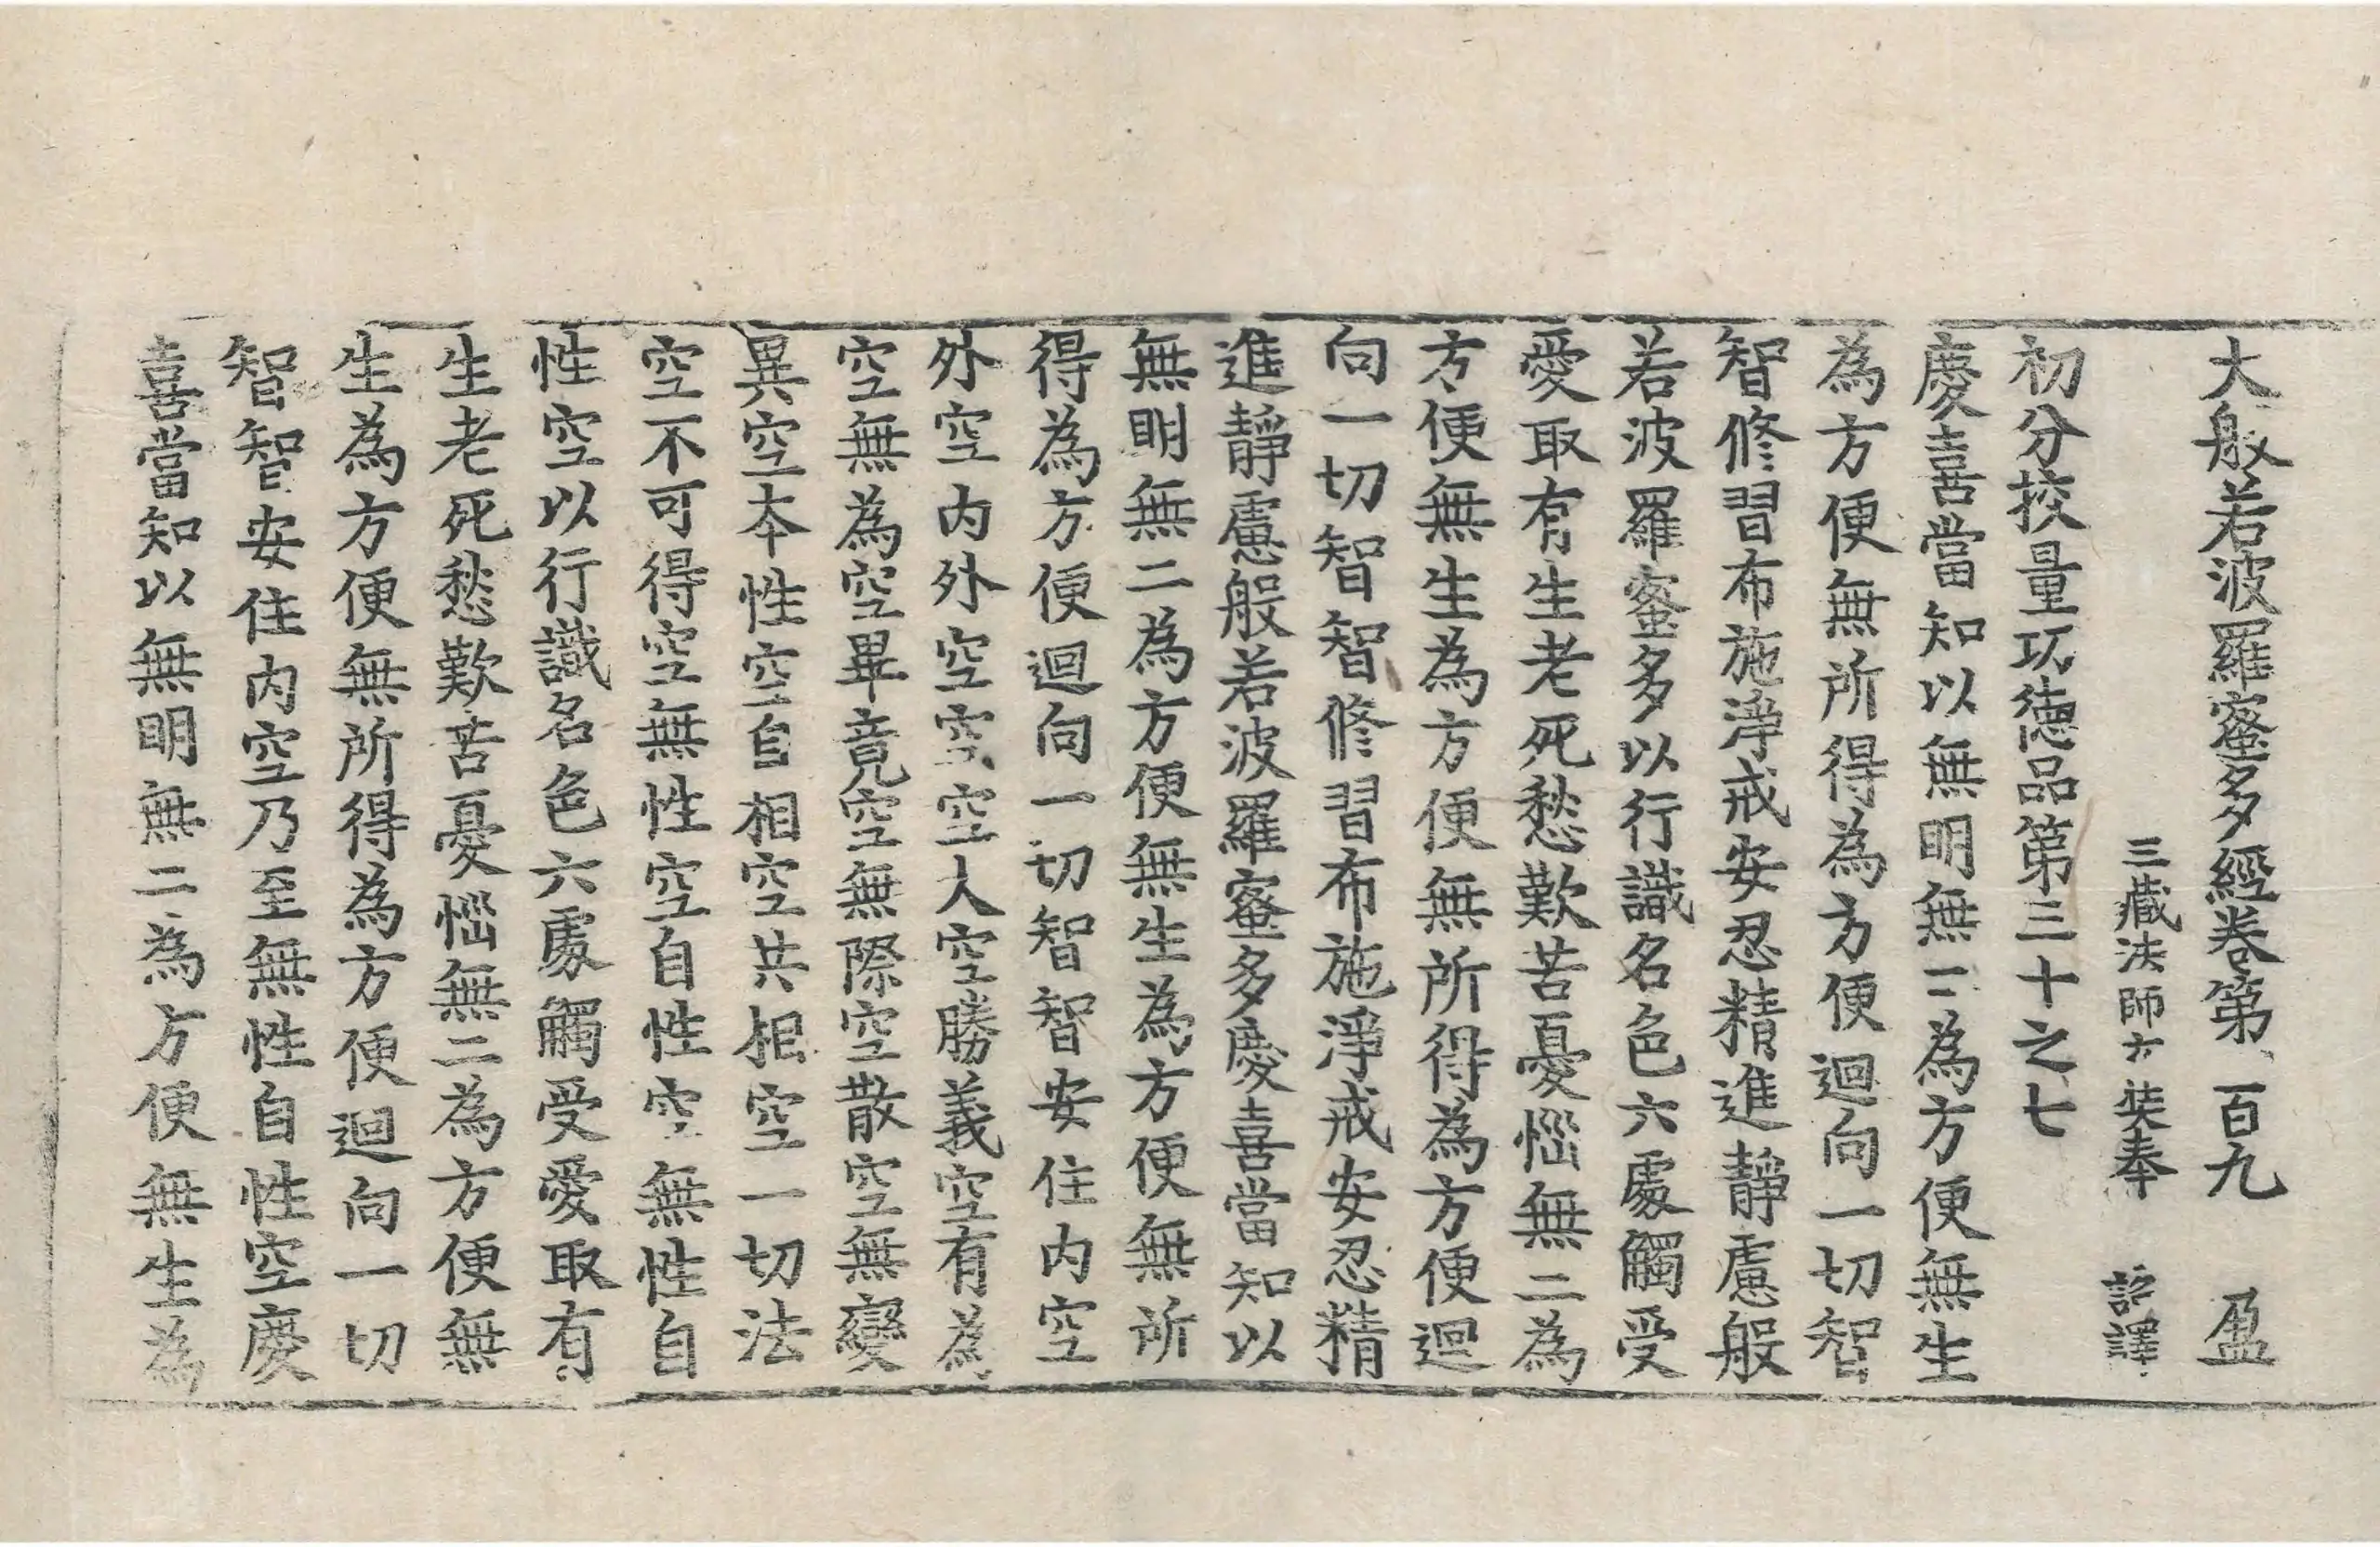 大般若波羅蜜多經卷第一百九 盈
三藏法師玄奘奉 詔譯
初分挍量功德品第三十之七
慶喜當知以無明無二為方便無生
為方便無所得為方便迴向一切智
智修習布施淨戒安忍精進靜慮般
若波羅蜜多以行識名色六處觸受
愛取有生老死愁歎苦憂惱無二為
方便無生為方便無所得為方便迴
向一切智智修習布施淨戒安忍精
進靜慮般若波羅蜜多慶喜當知以
無明無二為方便無生為方便無所
得為方便迴向一切智智安住內空
外空內外空空空大空勝義空有為
空無為空畢竟空無際空散空無變
異空本性空自相空共相空一切法
空不可得空無性空自性空無性自
性空以行識名色六處觸受愛取有
生老死愁歎苦憂惱無二為方便無
生為方便無所得為方便迴向一切
智智安住內空乃至無性自性空慶
喜當知以無明無二為方便無生為